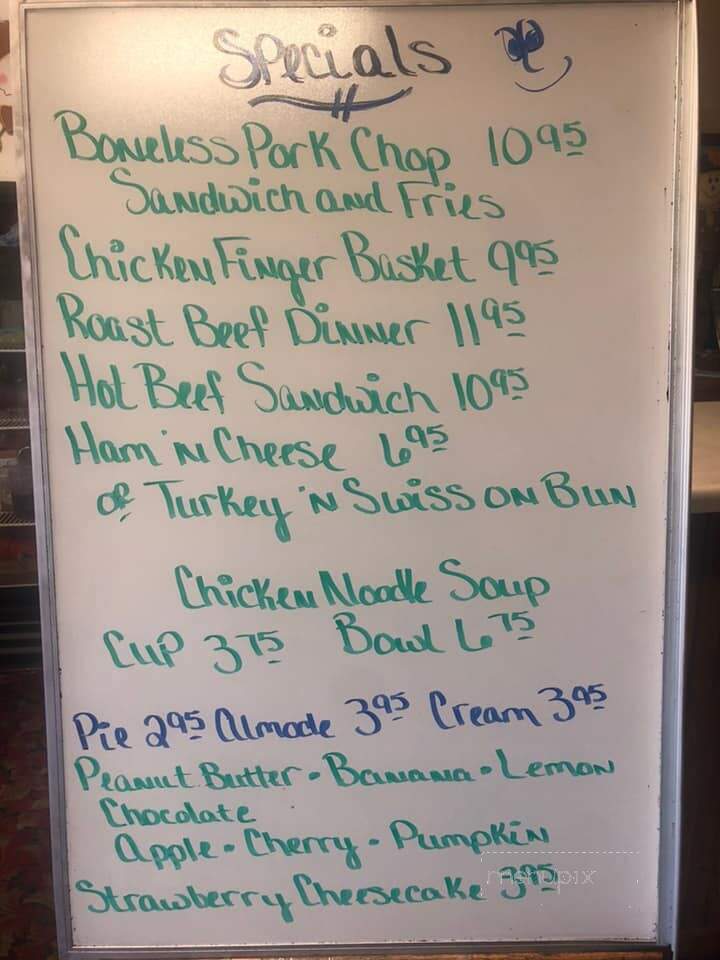 Specials
Boneless Pork Chop 10 95
Sandwich and Fries
Chicken Finger Basket 9 95
Roast Beef Dinner 11 95
Hot Beef Sandwich 10 95
Ham 'N Cheese 6 95
or Turkey 'N Swiss on Bun
Chicken Noodle Soup
Cup 3 75 Bowl 6 75
Pie 2 95 Almode 3 95 Cream 3 95
Peanut Butter - Banana - Lemon
Chocolate
Apple - Cherry - Pumpkin
Strawberry Cheesecake 3 95
menupix